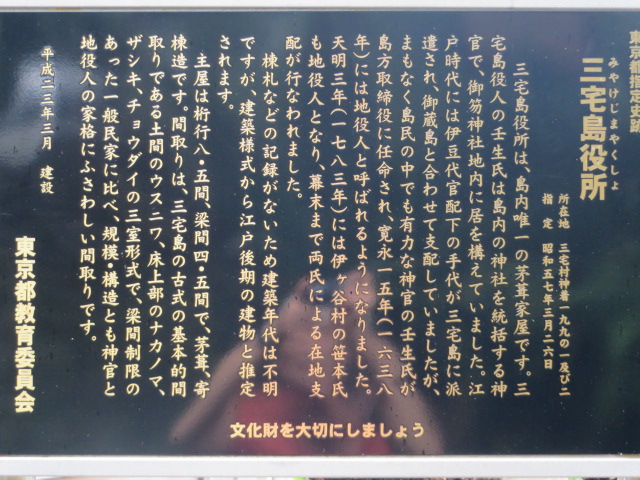 東京都指定史跡
みやけじまやくしょ
三宅島役所
所在地　三宅村神着一九九の一及び二
指　定　昭和五七年三月二六日
三宅島役所は、島内唯一の茅葺家屋です。三
宅島役人の壬生氏は島内の神社を統括する神
官で、御笏神社地内に居を構えていました。江
戸時代には伊豆代官配下の手代が三宅島に派
遣され、御蔵島と合わせて支配していましたが、
まもなく島民の中でも有力な神官の壬生氏が
島方取締役に任命され、寛永一五年（一六三八
年）には地役人と呼ばれるようになりました。
天明三年（一七八三年）には伊ヶ谷村の笹本氏
も地役人となり、幕末まで両氏による在地支
配が行なわれました。
棟札などの記録がないため建築年代は不明
ですが、建築様式から江戸後期の建物と推定
されます。
主屋は桁行八・五間、梁間四・五間で、茅葺、寄
棟造です。間取りは、三宅島の古式の基本的間
取りである土間のウスニワ、床上部のナカノマ、
ザシキ、チョウダイの三室形式で、梁間制限の
あった一般民家に比べ、規模・構造とも神官と
地役人の家格にふさわしい間取りです。
平成二三年三月　建設
東京都教育委員会
文化財を大切にしましょう